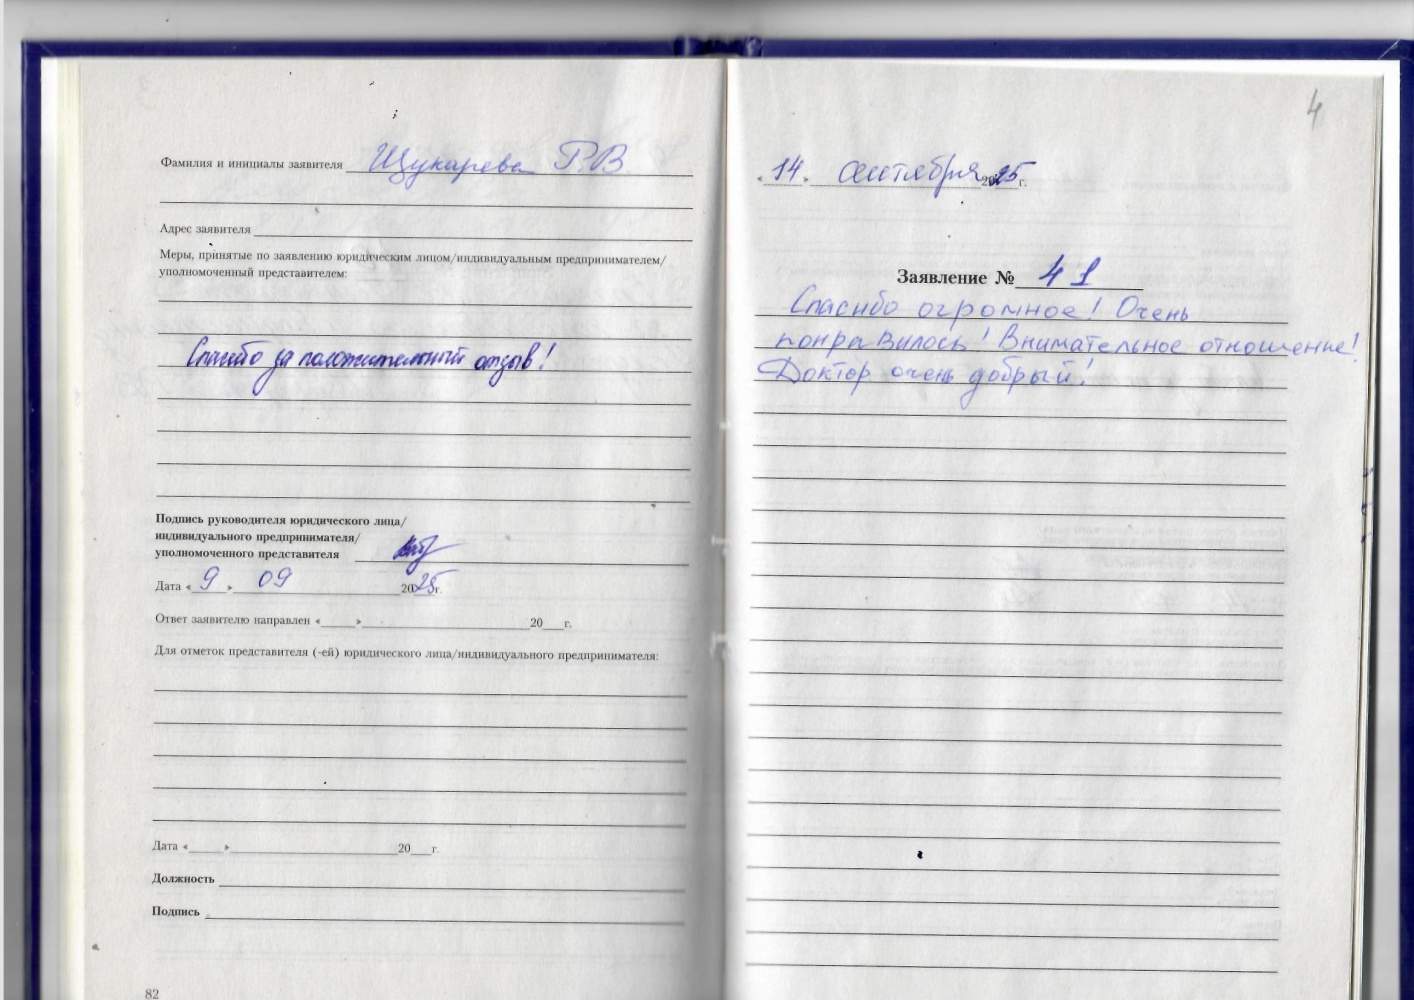 Фамилия и инициалы заявителя Щукарева Р.В.
Адрес заявителя
Меры, принятые по заявлению юридическим лицом/индивидуальным предпринимателем/
уполномоченный представителем:
Спасибо за положительный отзыв!
Подпись руководителя юридического лица/
индивидуального предпринимателя/
уполномоченного представителя
Дата «9» 09 2025г.
Ответ заявителю направлен «___» 20__г.
Для отметок представителя (-ей) юридического лица/индивидуального предпринимателя:
Дата «___» 20__г.
Должность
Подпись
82
4
«14» сентября 2025г.
Заявление № 41
Спасибо огромное! Очень
понравилось! Внимательное отношение!
Доктор очень добрый!